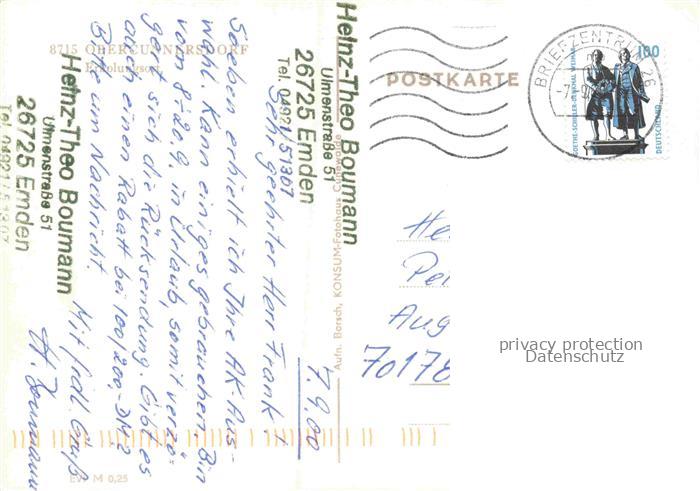 8715 OBERCUNNERSDORF
Erholungsort
Heinz-Theo Boumann
Ulmenstraße 51
26725 Emden
Tel. 04921/51307
Heinz-Theo Boumann
Ulmenstraße 51
26725 Emden
Tel. 04921/51307
7.9.00
Sehr geehrter Herr Frank!
Soeben erhielt ich Ihre AK-Aus-
wahl. Kann einiges gebrauchen. Bin
vom 8.-20.9. in Urlaub, somit verzö-
gert sich die Rücksendung. Gibt es
auch einen Rabatt bei 100/200,-DM?
Bitte um Nachricht.
Mit frdl. Gruß
H. Boumann
EVP M 0,25
Aufn. Borsch, KONSUM-Fotohaus Cunewalde
POSTKARTE
BRIEFZENTRUM 26
100
GOETHE-SCHILLER-DENKMAL WEIMAR
DEUTSCHLAND
He
Po
Aug
70178
privacy protection
Datenschutz